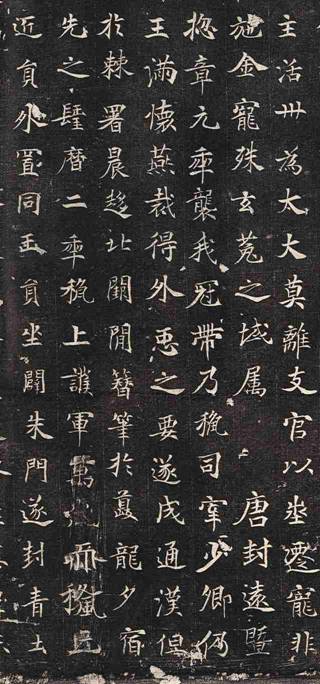 主活卅為太大莫離支官以坐遷寵非
施金寵殊玄菟之域属唐封遠暨
惣章元年襲我冠帶乃授司宰少卿仍
王滿懷燕裁得外臣之要遂成通漢但
於棘署晨趍北闕閒簪筆於夔龍夕宿
先之聖暦二年授上護軍萬而
近貟外置同正貟坐闢朱門遂封青土